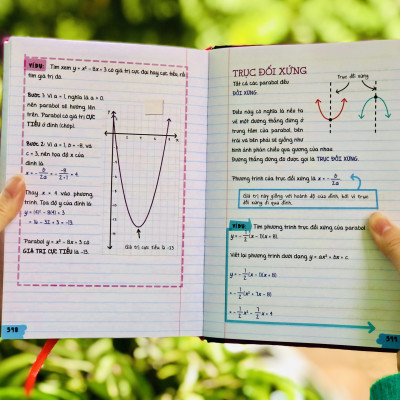 VÍ DỤ: Tìm xem y = x² - 8x + 3 có giá trị cực đại hay cực tiểu, rồi
tìm giá trị đó.
Bước 1: Vì a = 1, nghĩa là a > 0,
nên parabol sẽ hướng lên
trên. Parabol có giá trị CỰC
TIỂU ở đỉnh (chóp).
Bước 2: Vì a = 1, b = -8, và
c = 3, nên tọa độ x của
đỉnh là
x = - b/2a = - -8/2·1 = 4.
Thay x = 4 vào phương
trình. Tọa độ y của đỉnh là:
y = (4)² - 8(4) + 3
= 16 - 32 + 3 = -13.
Parabol y = x² - 8x + 3 có
GIÁ TRỊ CỰC TIỂU là -13.
Giá trị cực tiểu là -13
398
TRỤC ĐỐI XỨNG
Tất cả các parabol đều
ĐỐI XỨNG.
Trục đối xứng
Điều này có nghĩa là nếu ta
vẽ một đường thẳng đứng ở
trung tâm của parabol, bên
trái và bên phải sẽ giống như
hình ảnh phản chiếu qua gương của nhau.
Đường thẳng đứng đó được gọi là TRỤC ĐỐI XỨNG.
Phương trình của trục đối xứng là x = - b/2a.
Giá trị này giống với hoành độ của đỉnh, bởi vì trục
đối xứng đi qua đỉnh.
VÍ DỤ: Tìm phương trình trục đối xứng của parabol
y = - 1/2 (x - 1)(x + 8).
Viết lại phương trình dưới dạng y = ax² + bx + c.
y = - 1/2 (x - 1)(x + 8)
= - 1/2 (x² + 7x - 8)
= - 1/2 x² - 7/2 x + 4
399